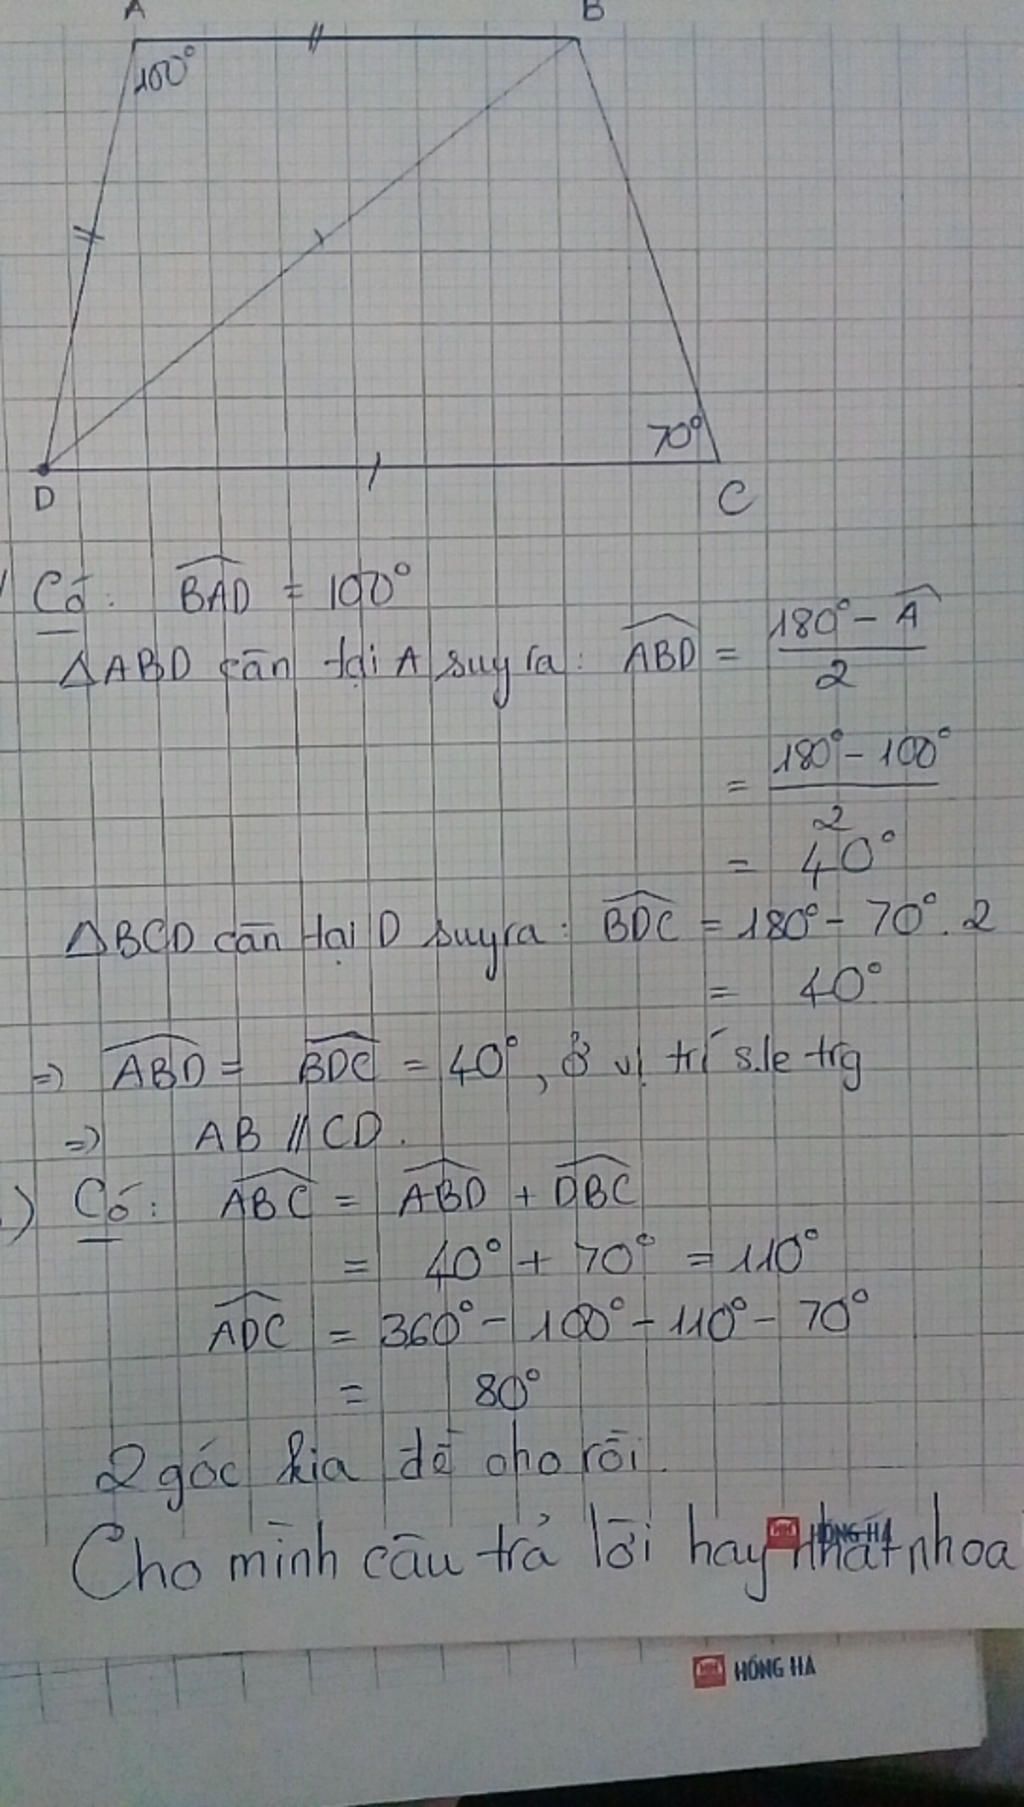 A B
100°
70°
D C
Có: BAD = 100°
△ABD cân tại A suy ra: ABD = 180° - A / 2
= 180° - 100° / 2
= 40°
△BCD cân tại D suy ra: BDC = 180° - 70°. 2
= 40°
=> ABD = BDC = 40°, ở vị trí s.le trg
=> AB // CD.
) Có: ABC = ABD + DBC
= 40° + 70° = 110°
ADC = 360° - 100° - 110° - 70°
= 80°
2 góc kia đề cho rồi.
Cho mình câu trả lời hay nhất nhoa
HỒNG HÀ
HỒNG HÀ